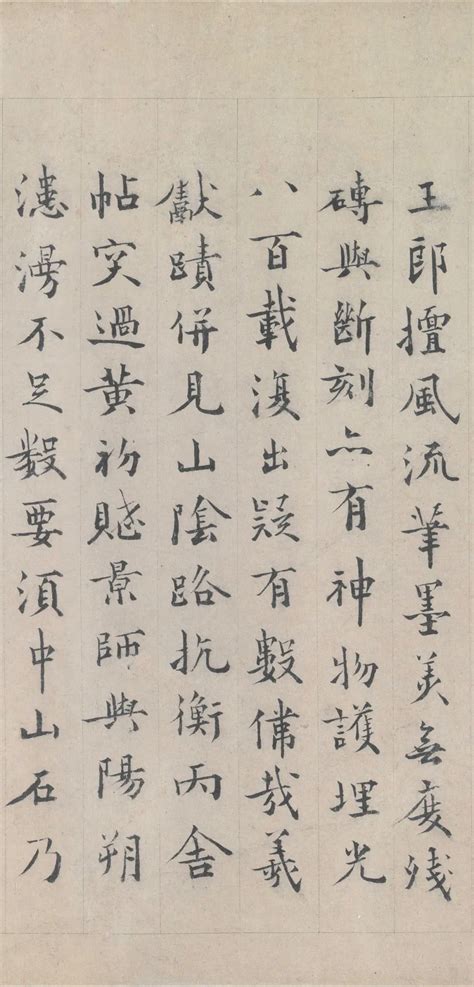 王郎擅風流筆墨美無度殘
磚與斷刻亦有神物護埋光
八百載復出疑有數偉哉羲
獻蹟併見山陰路抗衡丙舍
帖突過黃初賦景師與陽朔
漶漫不足數要須中山石乃